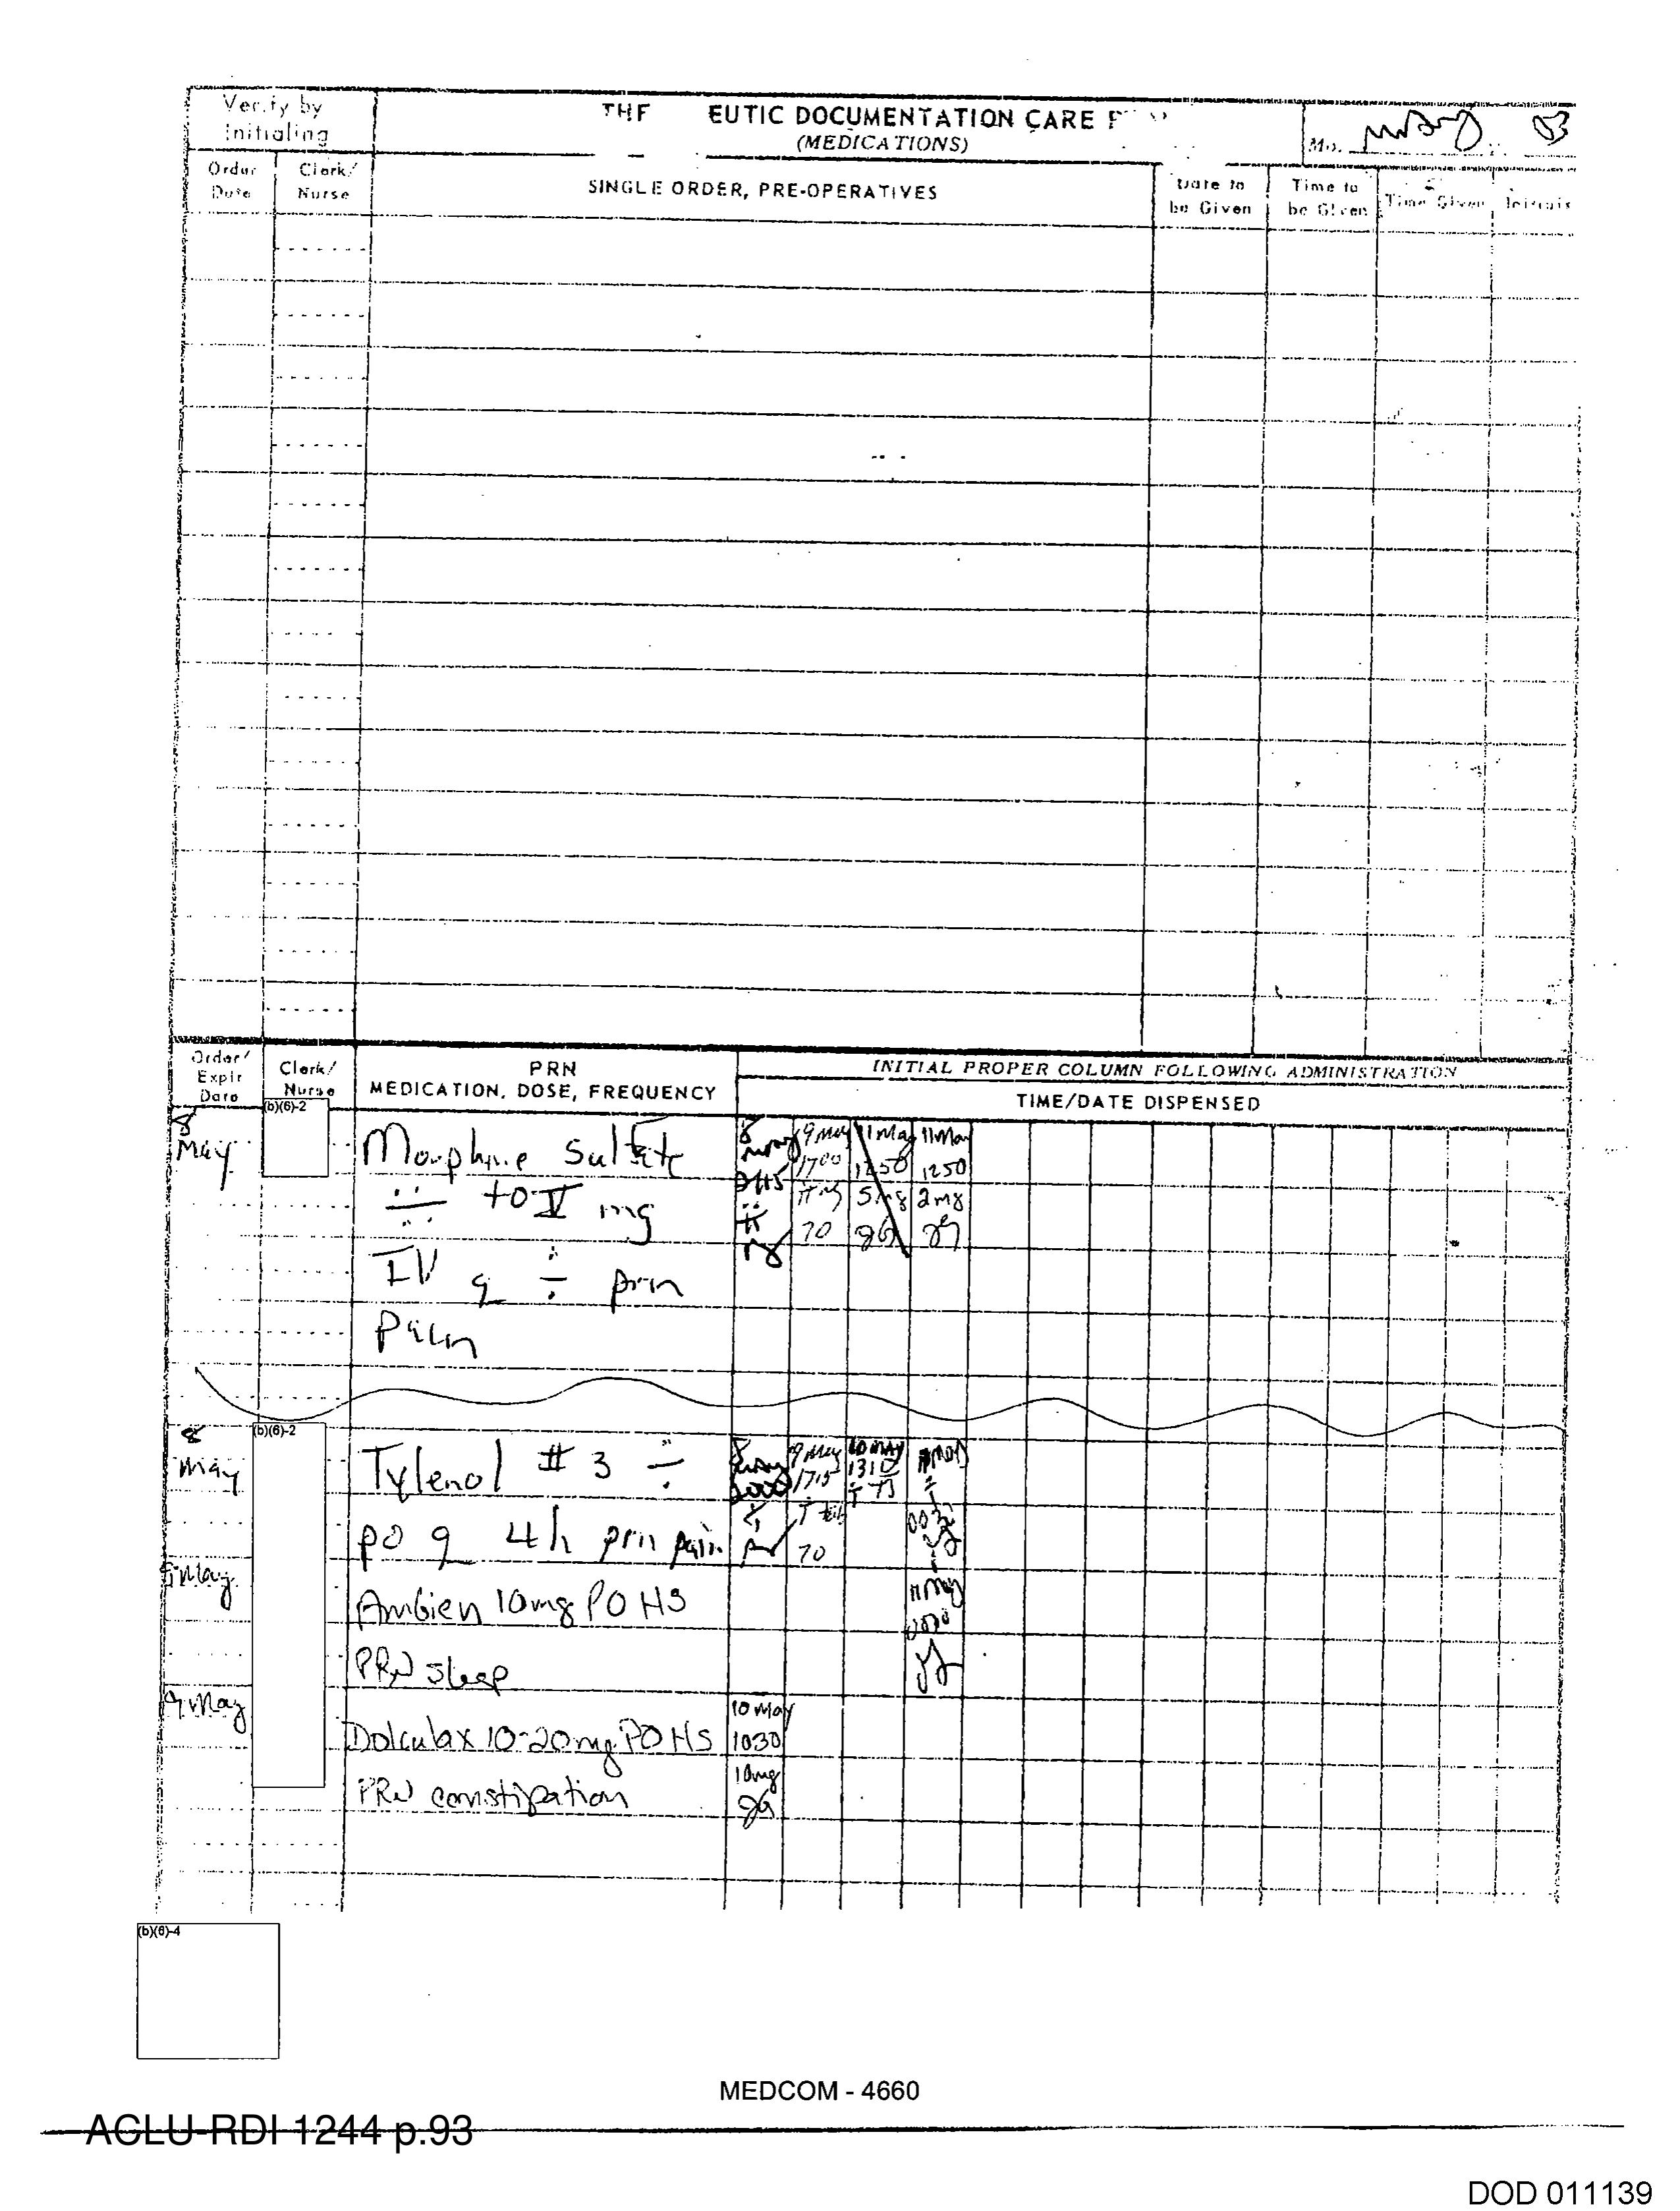 Verify by
Initialing
THF EUTIC DOCUMENTATION CARE
(MEDICATIONS)
Mo. May 03
Order
Date
Clerk/
Nurse
SINGLE ORDER, PRE-OPERATIVES
Date to
be Given
Time to
be Given
Time Given
Initials
Order/
Expir
Date
Clerk/
Nurse
PRN
MEDICATION, DOSE, FREQUENCY
INITIAL PROPER COLUMN FOLLOWING ADMINISTRATION
TIME/DATE DISPENSED
(b)(6)-2
8
May
Morphine Sulfate
to V mg
IV q prn
Pain
8 May
9 May
1700
70
11 May
1250
5mg
11 May
1250
2mg
(b)(6)-2
8
May
Tylenol # 3
po q 4h prn pain
8 May
2000
9 May
1715
70
10 MAY
1310
9 May
Ambien 10mg PO HS
PRN sleep
11 May
9 May
Dolculax 10-20mg PO HS
PRN constipation
10 May
1030
10mg
(b)(6)-4
MEDCOM - 4660
ACLU-RDI 1244 p.93
DOD 011139